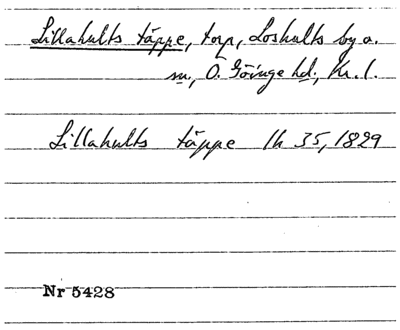 Lillahults täppe, torp, Loshults by o.
sn., Ö. Göinge hd., Kr. l.
Lillahults täppe lh 35, 1829
Nr 5428